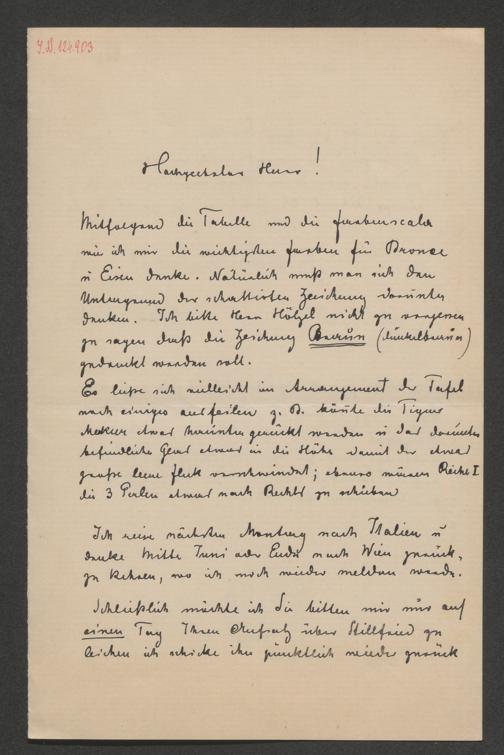 I.N. 124.903
Hochgeehrter Herr!
Mitfolgend die Tabelle und die Farbenscala
wie ich mir die wichtigsten Farben für Bronce
u Eisen denke. Natürlich muß man sich den
Untergrund der schattirten Zeichnung darunter
denken. Ich bitte Herrn Hölzel nicht zu vergessen
zu sagen daß die Zeichnung Braun (dunkelbraun)
gedruckt werden soll.
Es ließe sich vielleicht im Arrangement der Tafel
noch einiges ausfeilen z. B. könnte die Figur
etwas heruntergerückt werden u das darunter
befindliche etwas in die Höhe damit der etwas
große leere Fleck verschwindet; ebenso müssen Reihe I
die 3 Perlen etwas nach Rechts zu schieben
Ich reise nächsten Montag nach Italien u
denke Mitte Juni oder Ende nach Wien zurück-
zu kehren, wo ich mich wieder melden werde.
Schließlich möchte ich Sie bitten mir nur auf
einen Tag Ihren Aufsatz über Stillfried zu
leihen ich schicke ihn pünktlich wieder zurück